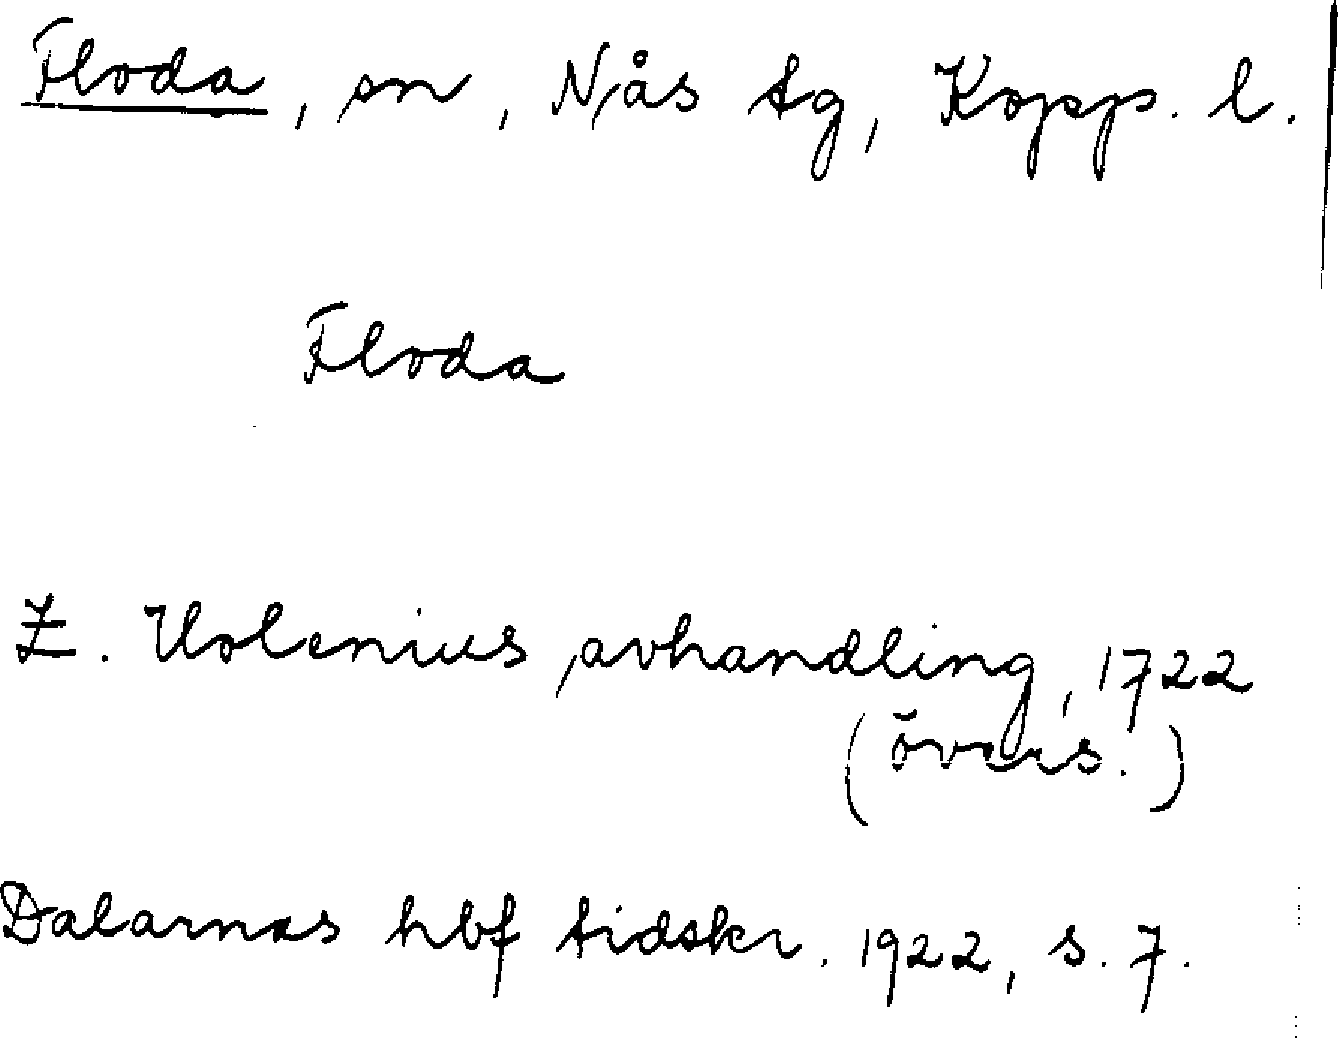 Floda, sn, Nås tg, Kopp. l.
Floda
Z. Holenius, avhandling, 1722
(övers.)
Dalarnas hbf tidskr. 1922, s. 7.